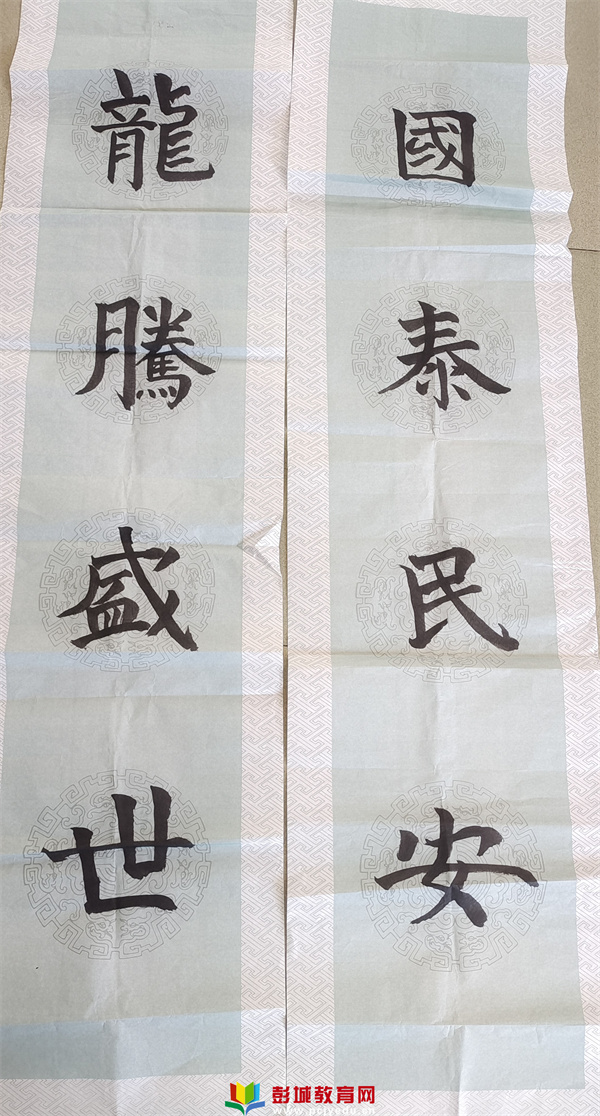 國泰民安
龍騰盛世
彭城教育网
www.pcjyedu.cn